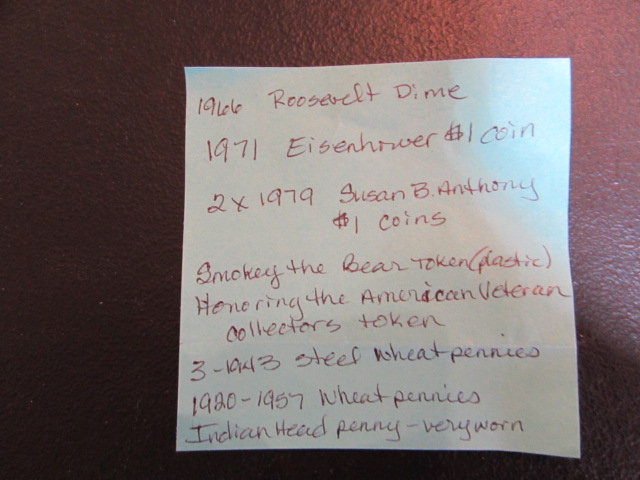 1966 Roosevelt Dime
1971 Eisenhower $1 coin
2 x 1979 Susan B. Anthony
$1 coins
Smokey the Bear Token (plastic)
Honoring the American Veteran
collectors token
3-1943 Steel Wheat pennies
1920-1957 Wheat pennies
Indian Head penny - very worn